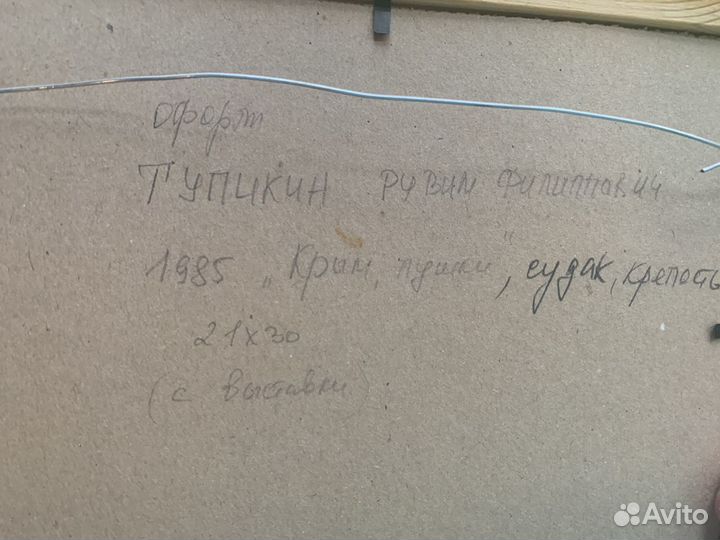 офорт
ТУПИКИН РУВИМ ФИЛИППОВИЧ
1985 „Крым, пушки", судак, крепость
21х30
(с выставки)
Avito